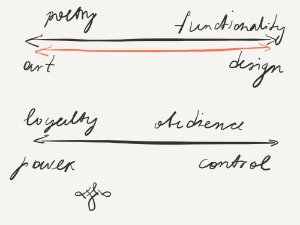 poetry functionality
art design
loyalty obidience
power control